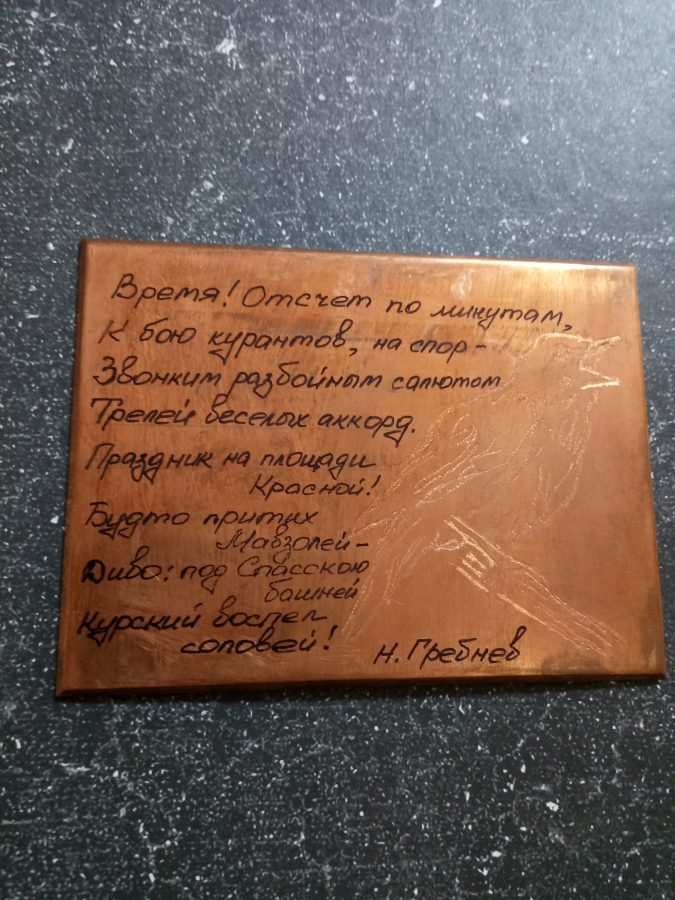 Время! Отсчет по минутам,
К бою курантов, на спор -
Звонким разбойным салютом
Трелей веселых аккорд.
Праздник на площади
Красной!
Будто притих
Мавзолей -
Диво: под Спасскою
башней
Курский воспел
соловей!
Н. Гребнев